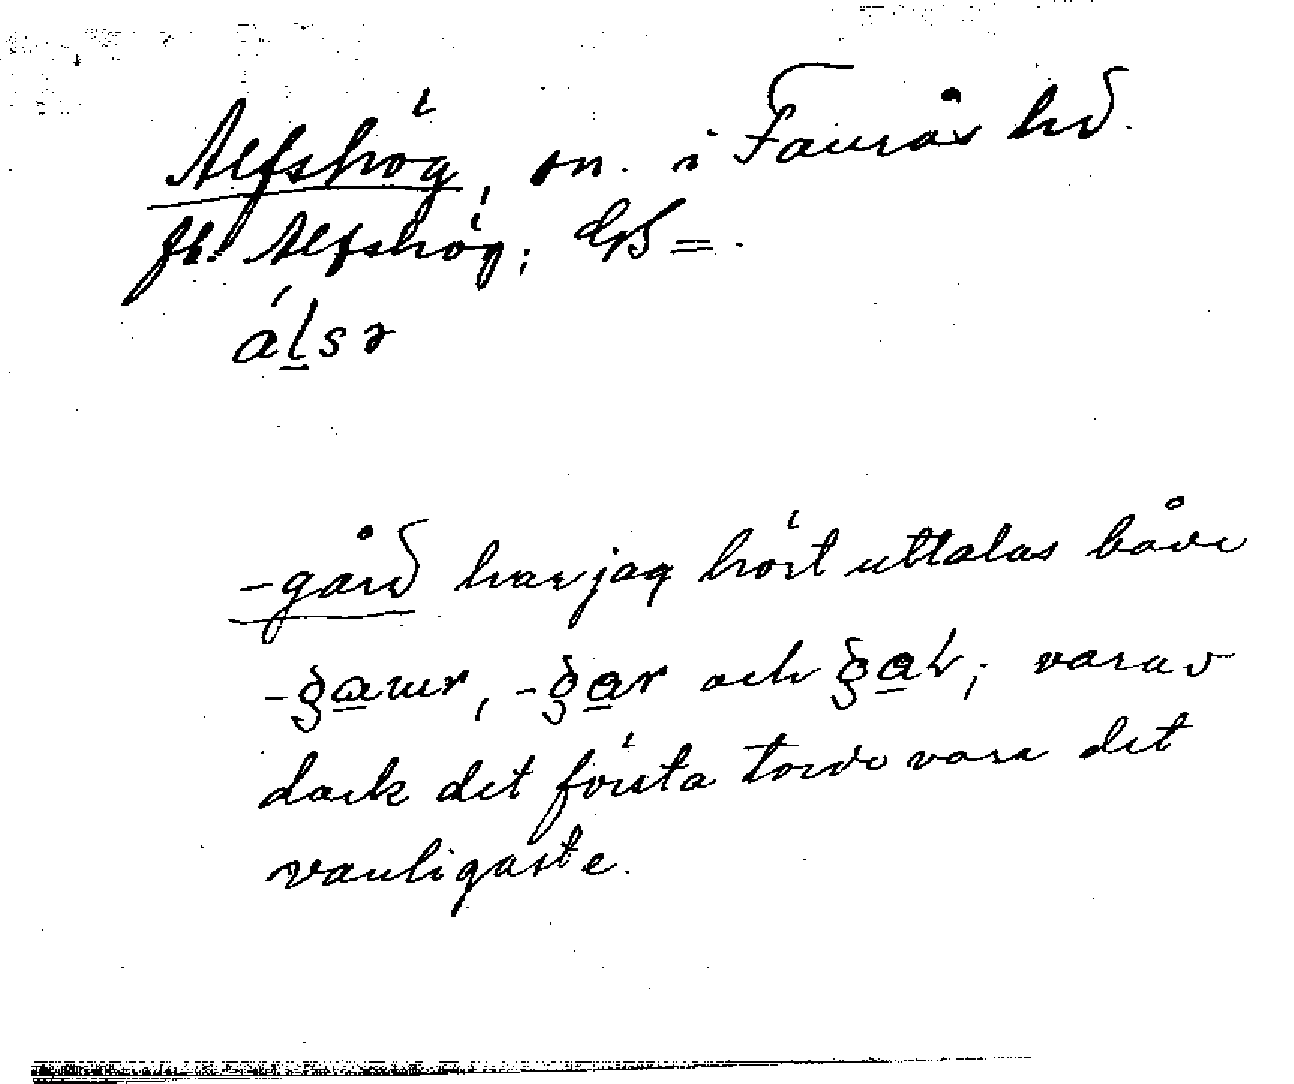 Alfshög, sn. i Faurås hd.
fh. Alfshög; GS = .
álsə
-gård har jag hört uttalas både
-gawr, -gar och gaɫ; varav
dock det första torde vara det
vanligaste.